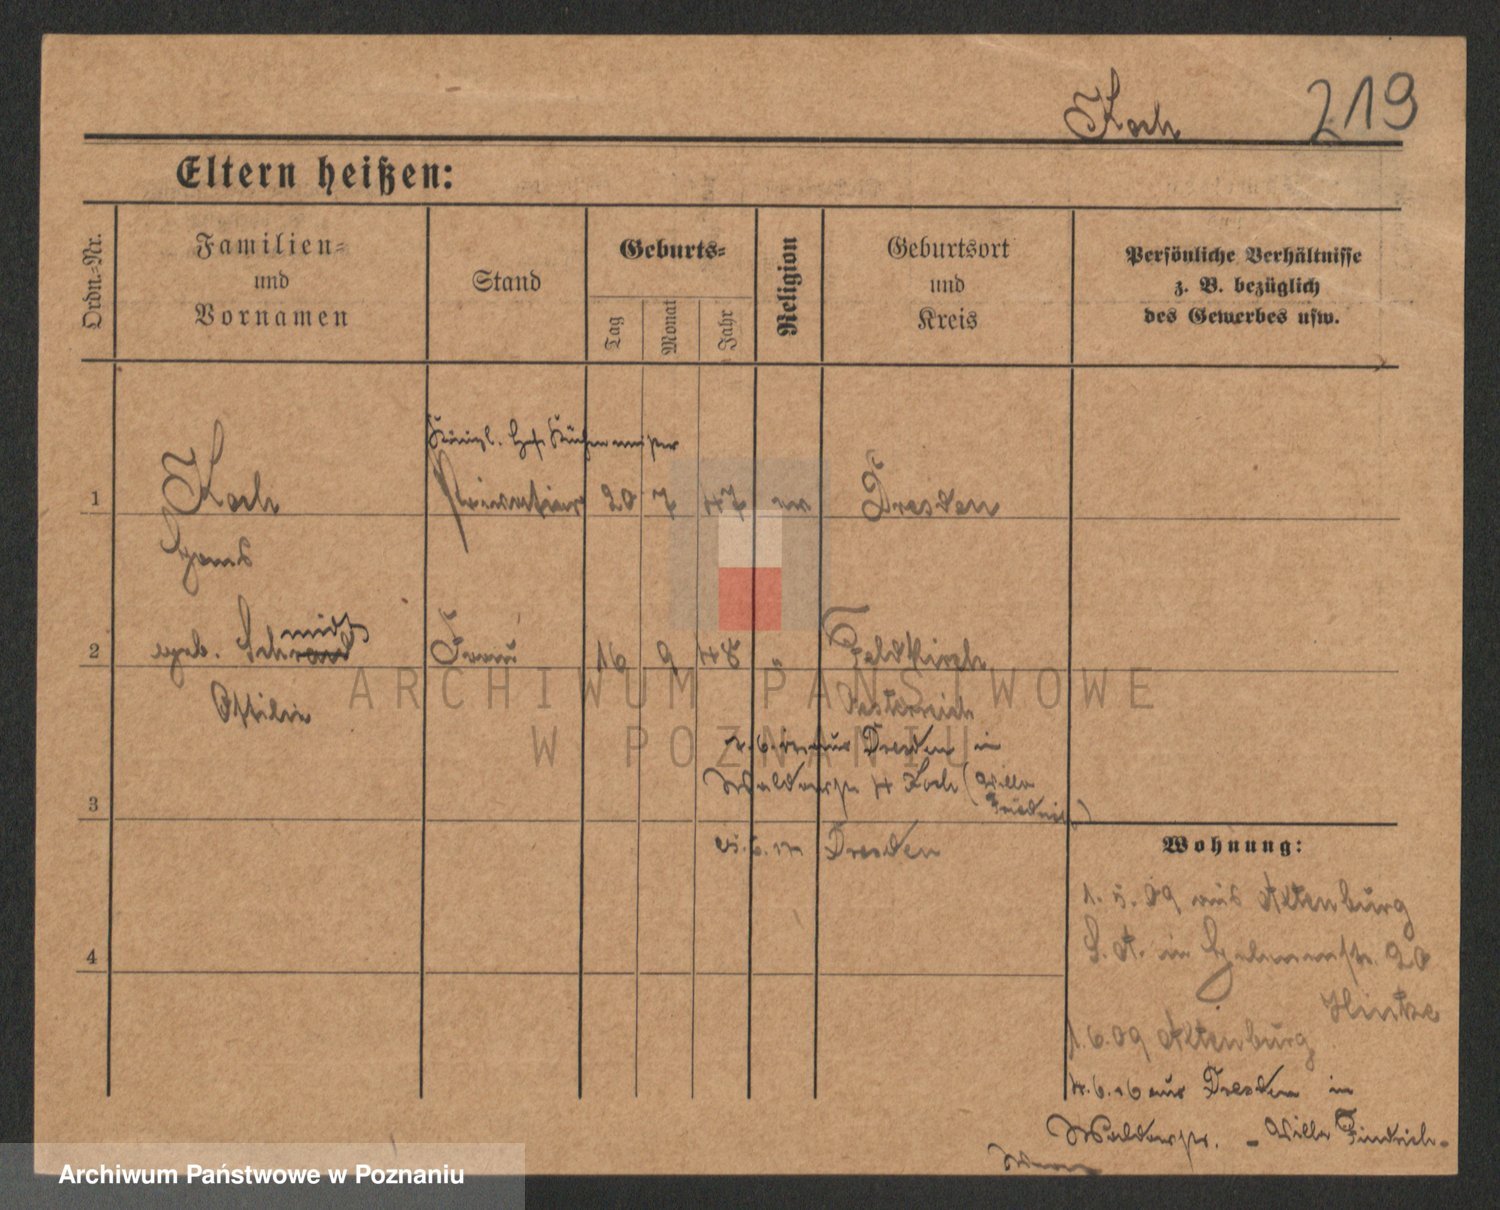 Koch 219
Eltern heißen:
Ordn.-Nr.
Familien-
und
Vornamen
Stand
Geburts-
Tag
Monat
Jahr
Religion
Geburtsort
und
Kreis
Persönliche Verhältnisse
z. B. bezüglich
des Gewerbes usw.
Königl. Hof
1 Koch Privatier 20 7 47 Dresden
Hans
2 geb. Schmidt Frau 16 9 48 " Feldkirch
Ottilie Österreich
aus Dresden in
Walderseestr. 4 Koch (Villa
Friedrich
3
Dresden
Wohnung:
1. 5. 09 aus Altenburg
S. A. in 20
Hintze
1. 6. 09 Altenburg
4. 6. 16 aus Dresden in
Walderseestr. - Villa Friedrich-
4
ARCHIWUM PAŃSTWOWE
W POZNANIU
Archiwum Państwowe w Poznaniu